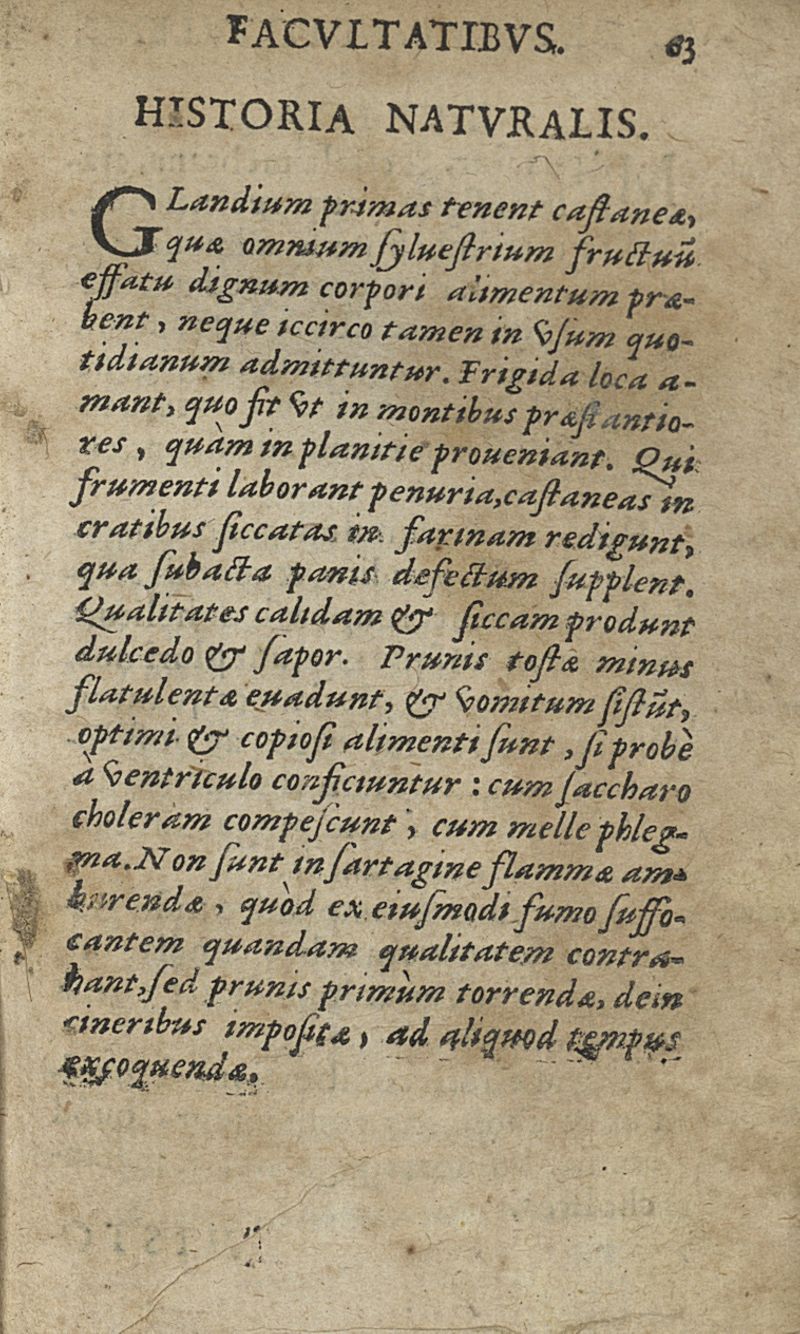 FACVLTATIBVS. 63
HISTORIA NATVRALIS.
GLandium primas tenent caſtaneæ,
quæ omnium ſylueſtrium fructuū
effatu dignum corpori alimentum præ-
bent, neque iccirco tamen in vſum quo-
tidianum admittuntur. Frigida loca a-
mant, quo fit vt in montibus præſtantio-
res, quàm in planitie proueniant. Qui
frumenti laborant penuria, caſtaneas in
cratibus ſiccatas in farinam redigunt,
qua ſubacta panis defectum ſupplent.
Qualitates calidam & ſiccam produnt
dulcedo & ſapor. Prunis toſtæ minus
flatulentæ euadunt, & vomitum ſiſtūt,
optimi & copioſi alimenti ſunt, ſi probè
à ventriculo conficiuntur : cum ſaccharo
choleram compeſcunt, cum melle phleg-
ma. Non ſunt in ſartagine flammæ am-
burendæ, quòd ex eiuſmodi fumo ſuffo-
cantem quandam qualitatem contra-
hant, ſed prunis primùm torrendæ, dein
cineribus impoſitæ, ad aliquod tempus
excoquendæ.